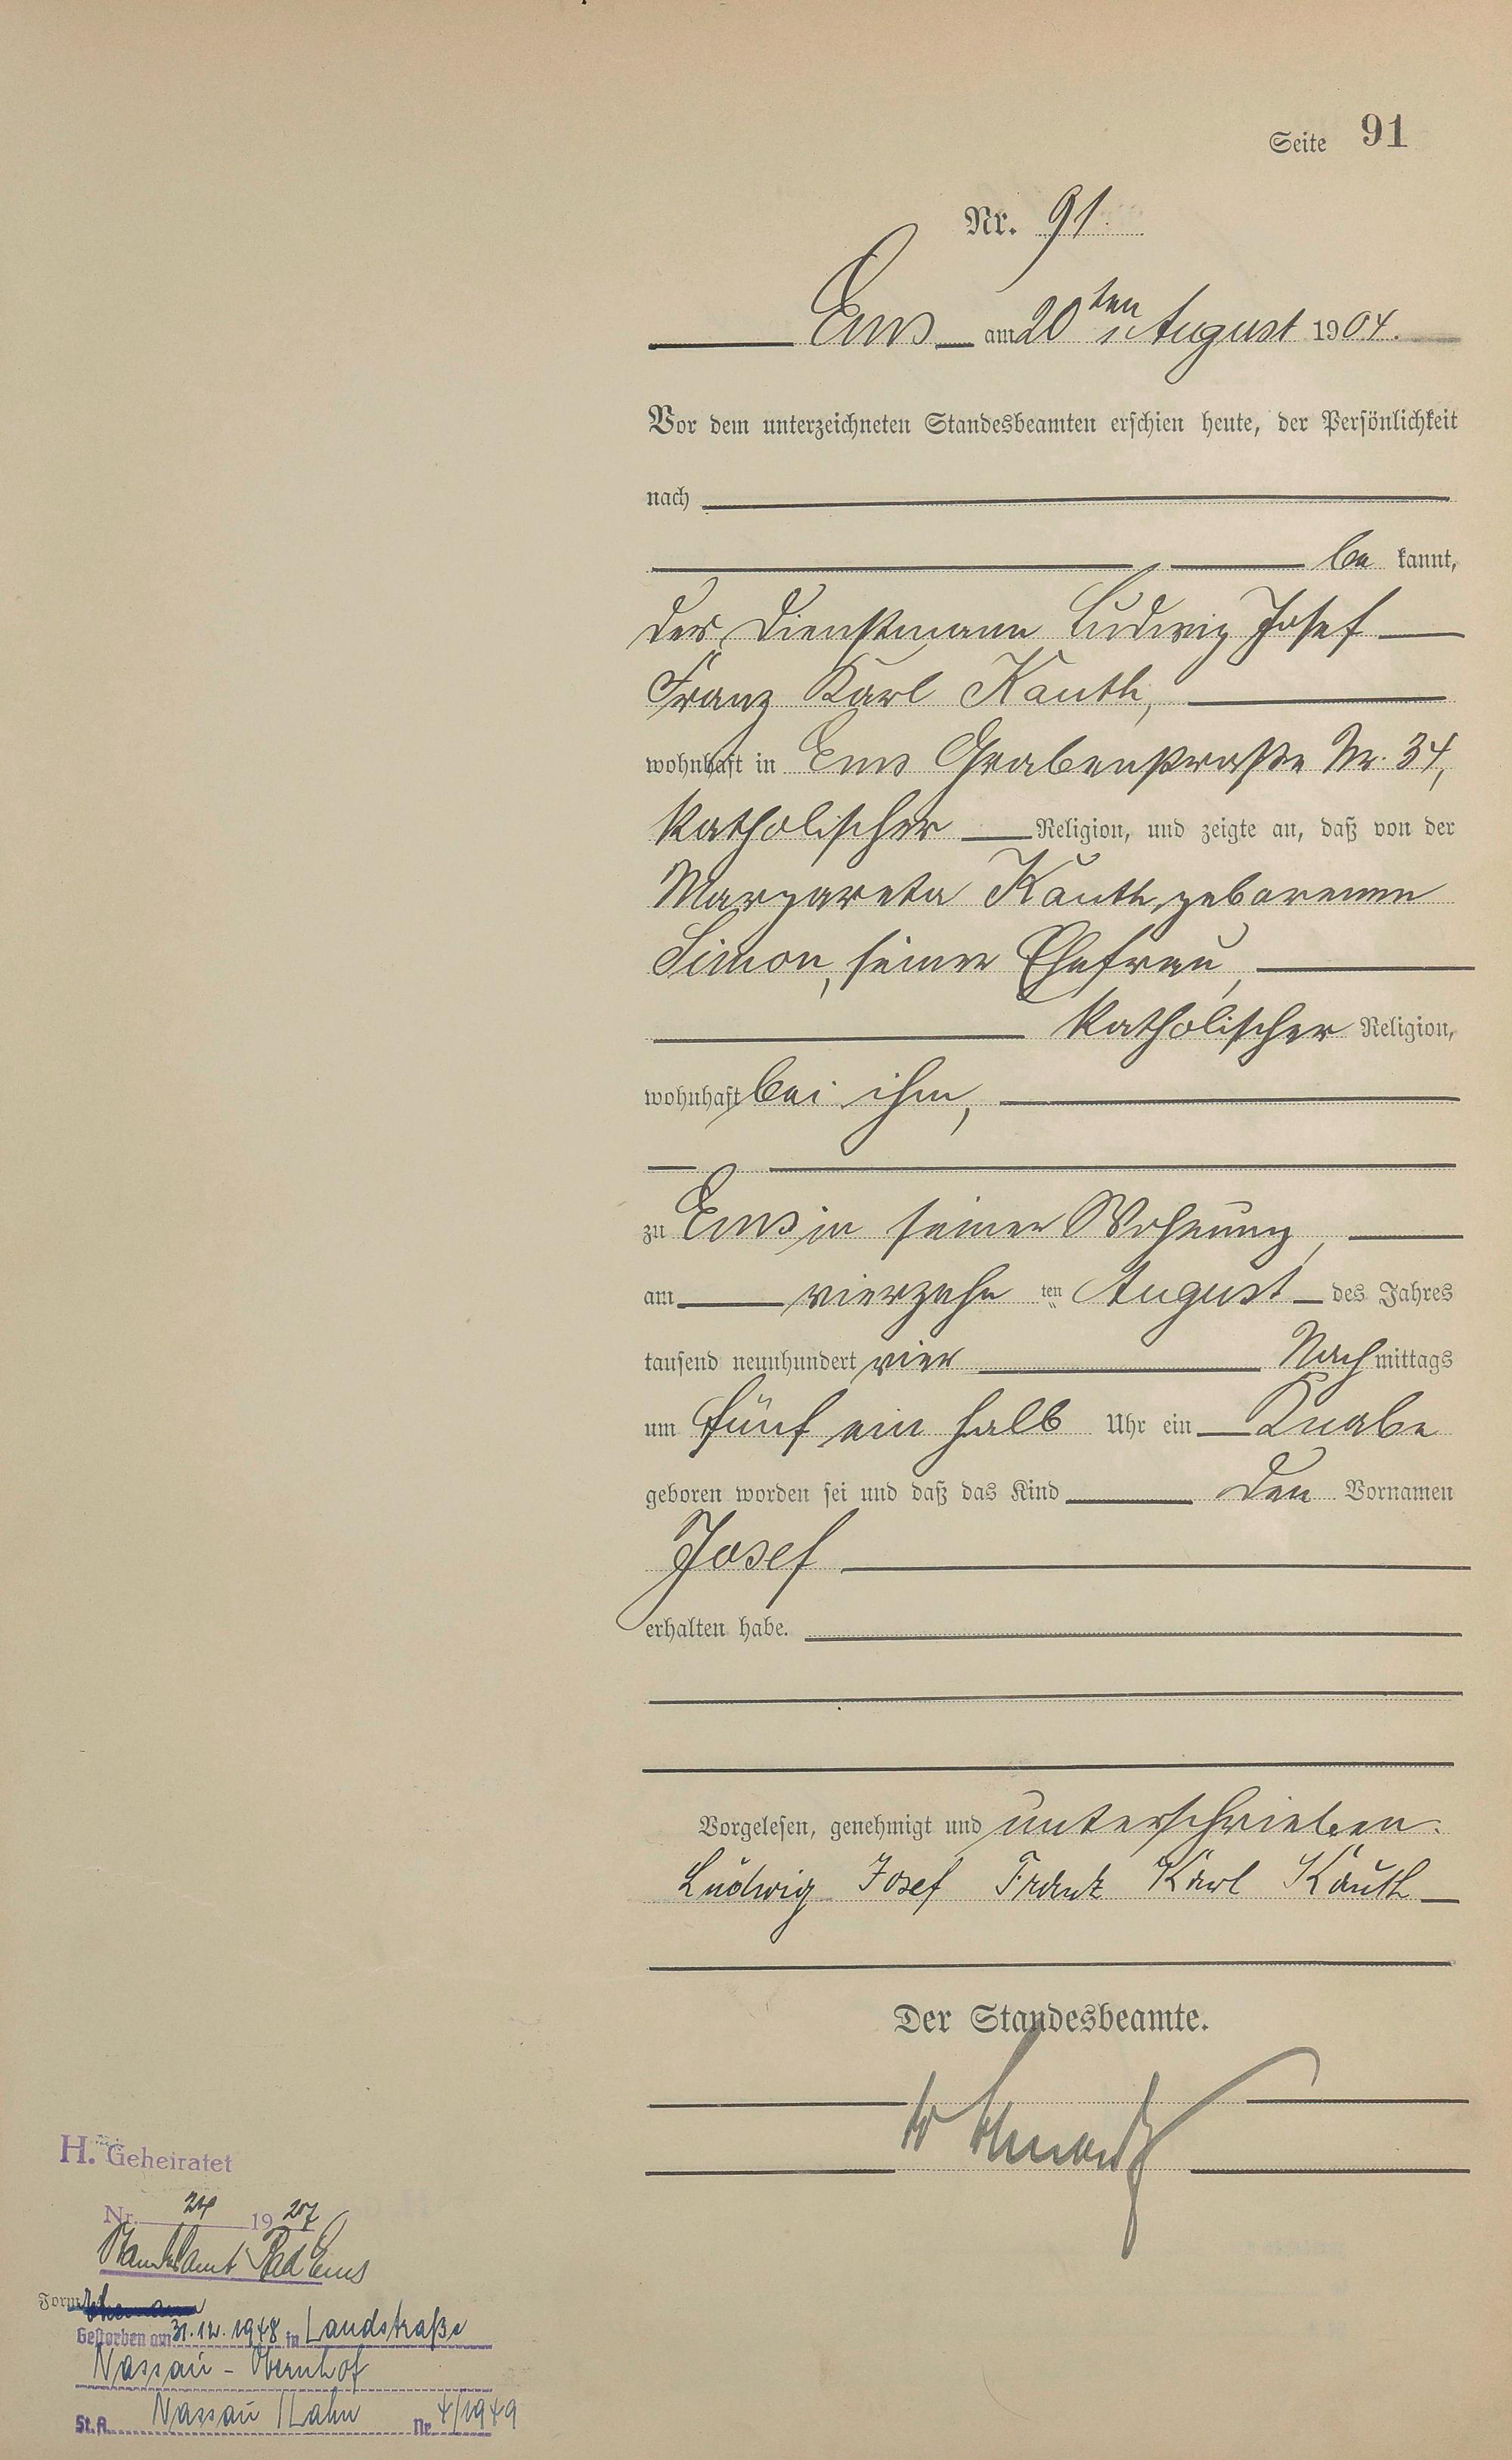 Seite 91
Nr. 91.
Ems am 20ten August 1904.
Vor dem unterzeichneten Standesbeamten erschien heute, der Persönlichkeit
nach
be kannt,
der Dienstmann Ludwig Josef
Franz Karl Kauth,
wohnhaft in Ems Grabenstraße Nr. 34,
katholischer Religion, und zeigte an, daß von der
Margareta Kauth, geborenen
Simon, seiner Ehefrau,
katholischer Religion,
wohnhaft bei ihm,
zu Ems in seiner Wohnung,
am vierzehn ten August des Jahres
tausend neunhundert vier Nach mittags
um fünf ein halb Uhr ein Knabe
geboren worden sei und daß das Kind den Vornamen
Josef
erhalten habe.
Vorgelesen, genehmigt und unterschrieben.
Ludwig Josef Franz Karl Kauth
Der Standesbeamte.
H. Geheiratet
Nr. 24 1927
Standesamt Bad Ems
Form
Gestorben am 31.12.1948 in Landstraße
Nassau - Obernhof
St.A. Nassau / Lahn Nr. 4/1949